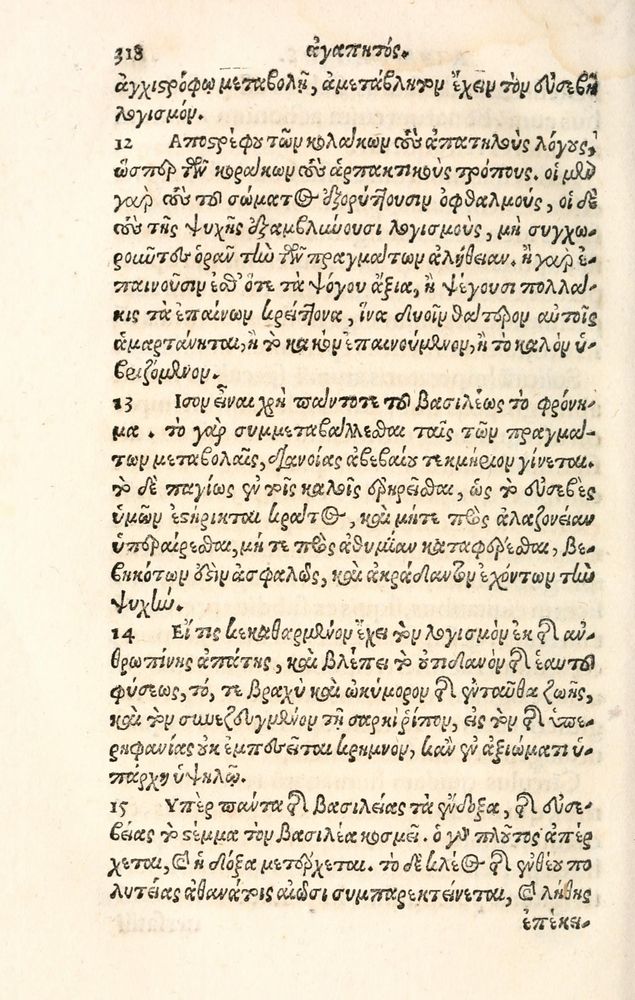 318 ἀγαπητός.
ἀγχιστρόφῳ μεταβολῇ, ἀμετάβλητον ἔχειν τὸν εὐσεβῆ
λογισμόν.
12 Αποστρέφου τῶν κολάκων τοὺς ἀπατηλοὺς λόγους,
ὥσπερ τῶν κοράκων τοὺς ἁρπακτικοὺς τρόπους. οἱ μὲν
γὰρ τοὺς τοῦ σώματος ἐξορύττουσιν ὀφθαλμούς, οἱ δὲ
τοὺς τῆς ψυχῆς ἐξαμβλύνουσι λογισμούς, μὴ συγχω-
ροῦντες ὁρᾶν τὴν τῶν πραγμάτων ἀλήθειαν. ἢ γὰρ ἐ-
παινοῦσιν ἔσθ' ὅτε τὰ ψόγου ἄξια, ἢ ψέγουσι πολλά-
κις τὰ ἐπαίνων κρείττονα, ἵνα δυοῖν θάτερον αὐτοῖς
ἁμαρτάνηται, ἢ τὸ κακὸν ἐπαινούμενον, ἢ τὸ καλὸν ὑ-
βριζόμενον.
13 Ισον εἶναι χρὴ πάντοτε τοῦ βασιλέως τὸ φρόνη-
μα. τὸ γὰρ συμμεταβάλλεσθαι ταῖς τῶν πραγμά-
των μεταβολαῖς, διανοίας ἀβεβαίου τεκμήριον γίνεται.
τὸ δὲ παγίως ἐν τοῖς καλοῖς ἐρηρεῖσθαι, ὡς τὸ εὐσεβὲς
ὑμῶν ἐστήρικται κράτος, καὶ μήτε πρὸς ἀλαζονείαν
ὑπεραίρεσθαι, μή τε πρὸς ἀθυμίαν καταφέρεσθαι, βε-
βηκότων ἐστὶν ἀσφαλῶς, καὶ ἀκράδαντον ἐχόντων τὴν
ψυχήν.
14 Εἴ τις κεκαθαρμένον ἔχει τὸν λογισμὸν ἐκ τῆς ἀν-
θρωπίνης ἀπάτης, καὶ βλέπει τὸ οὐτιδανὸν τῆς ἑαυτοῦ
φύσεως, τό, τε βραχὺ καὶ ὠκύμορον τῆς ἐνταῦθα ζωῆς,
καὶ τὸν συνεζευγμένον τῇ σαρκὶ ῥύπον, εἰς τὸν τῆς ὑπε-
ρηφανίας οὐκ ἐμπεσεῖται κρημνόν, κἂν ἐν ἀξιώματι ὑ-
πάρχῃ ὑψηλῷ.
15 Υπὲρ πάντα τῆς βασιλείας τὰ ἔνδοξα, τῆς εὐσε-
βείας τὸ στέμμα τὸν βασιλέα κοσμεῖ. ὁ γὰρ πλοῦτος ἀπέρ
χεται, καὶ ἡ δόξα μετέρχεται. τὸ δὲ κλέος τῆς ἐνθέου πο
λιτείας ἀθανάτοις αἰῶσι συμπαρεκτείνεται, καὶ λήθης
ἐπέκει-